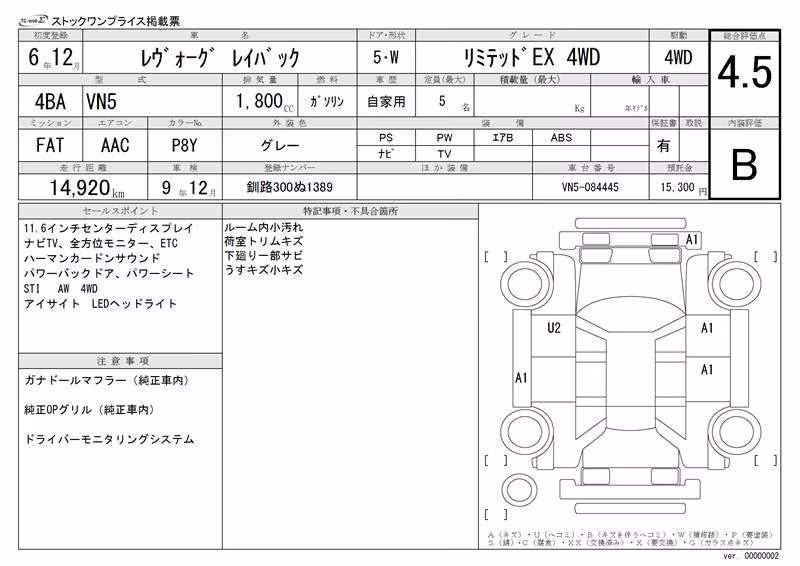 TC-webΣ ストックワンプライス掲載票
初度登録 車名 ドア・形状 グレード 駆動 総合評価点
6年12月 ﾚｳﾞｫｰｸﾞ ﾚｲﾊﾞｯｸ 5・W ﾘﾐﾃｯﾄﾞEX 4WD 4WD 4.5
型式 排気量 燃料 車歴 定員(最大) 積載量(最大) 輸入車
4BA VN5 1,800CC ｶﾞｿﾘﾝ 自家用 5名 Kg 年ﾓﾃﾞﾙ
ミッション エアコン カラーNo. 外装色 装備 保証書 取説 内装評価
FAT AAC P8Y グレー PS PW ｴｱB ABS 有 B
ﾅﾋﾞ TV
走行距離 車検 登録ナンバー ほか装備 車台番号 預託金
14,920km 9年12月 釧路300ぬ1389 VN5-084445 15,300円
セールスポイント
11.6インチセンターディスプレイ
ナビTV、全方位モニター、ETC
ハーマンカードンサウンド
パワーバックドア、パワーシート
STI AW 4WD
アイサイト LEDヘッドライト
特記事項・不具合箇所
ルーム内小汚れ
荷室トリムキズ
下廻り一部サビ
うすキズ小キズ
注意事項
ガナドールマフラー（純正車内）
純正OPグリル（純正車内）
ドライバーモニタリングシステム
A1
[ ] [ ]
U2 A1
A1
A1
[ ] [ ]
[ ]
A（キズ）・U（ヘコミ）・B（キズを伴うヘコミ）・W（補修跡）・P（要塗装）
S（錆）・C（腐食）・XX（交換済み）・X（要交換）・G（ガラス点キズ）
ver. 00000002